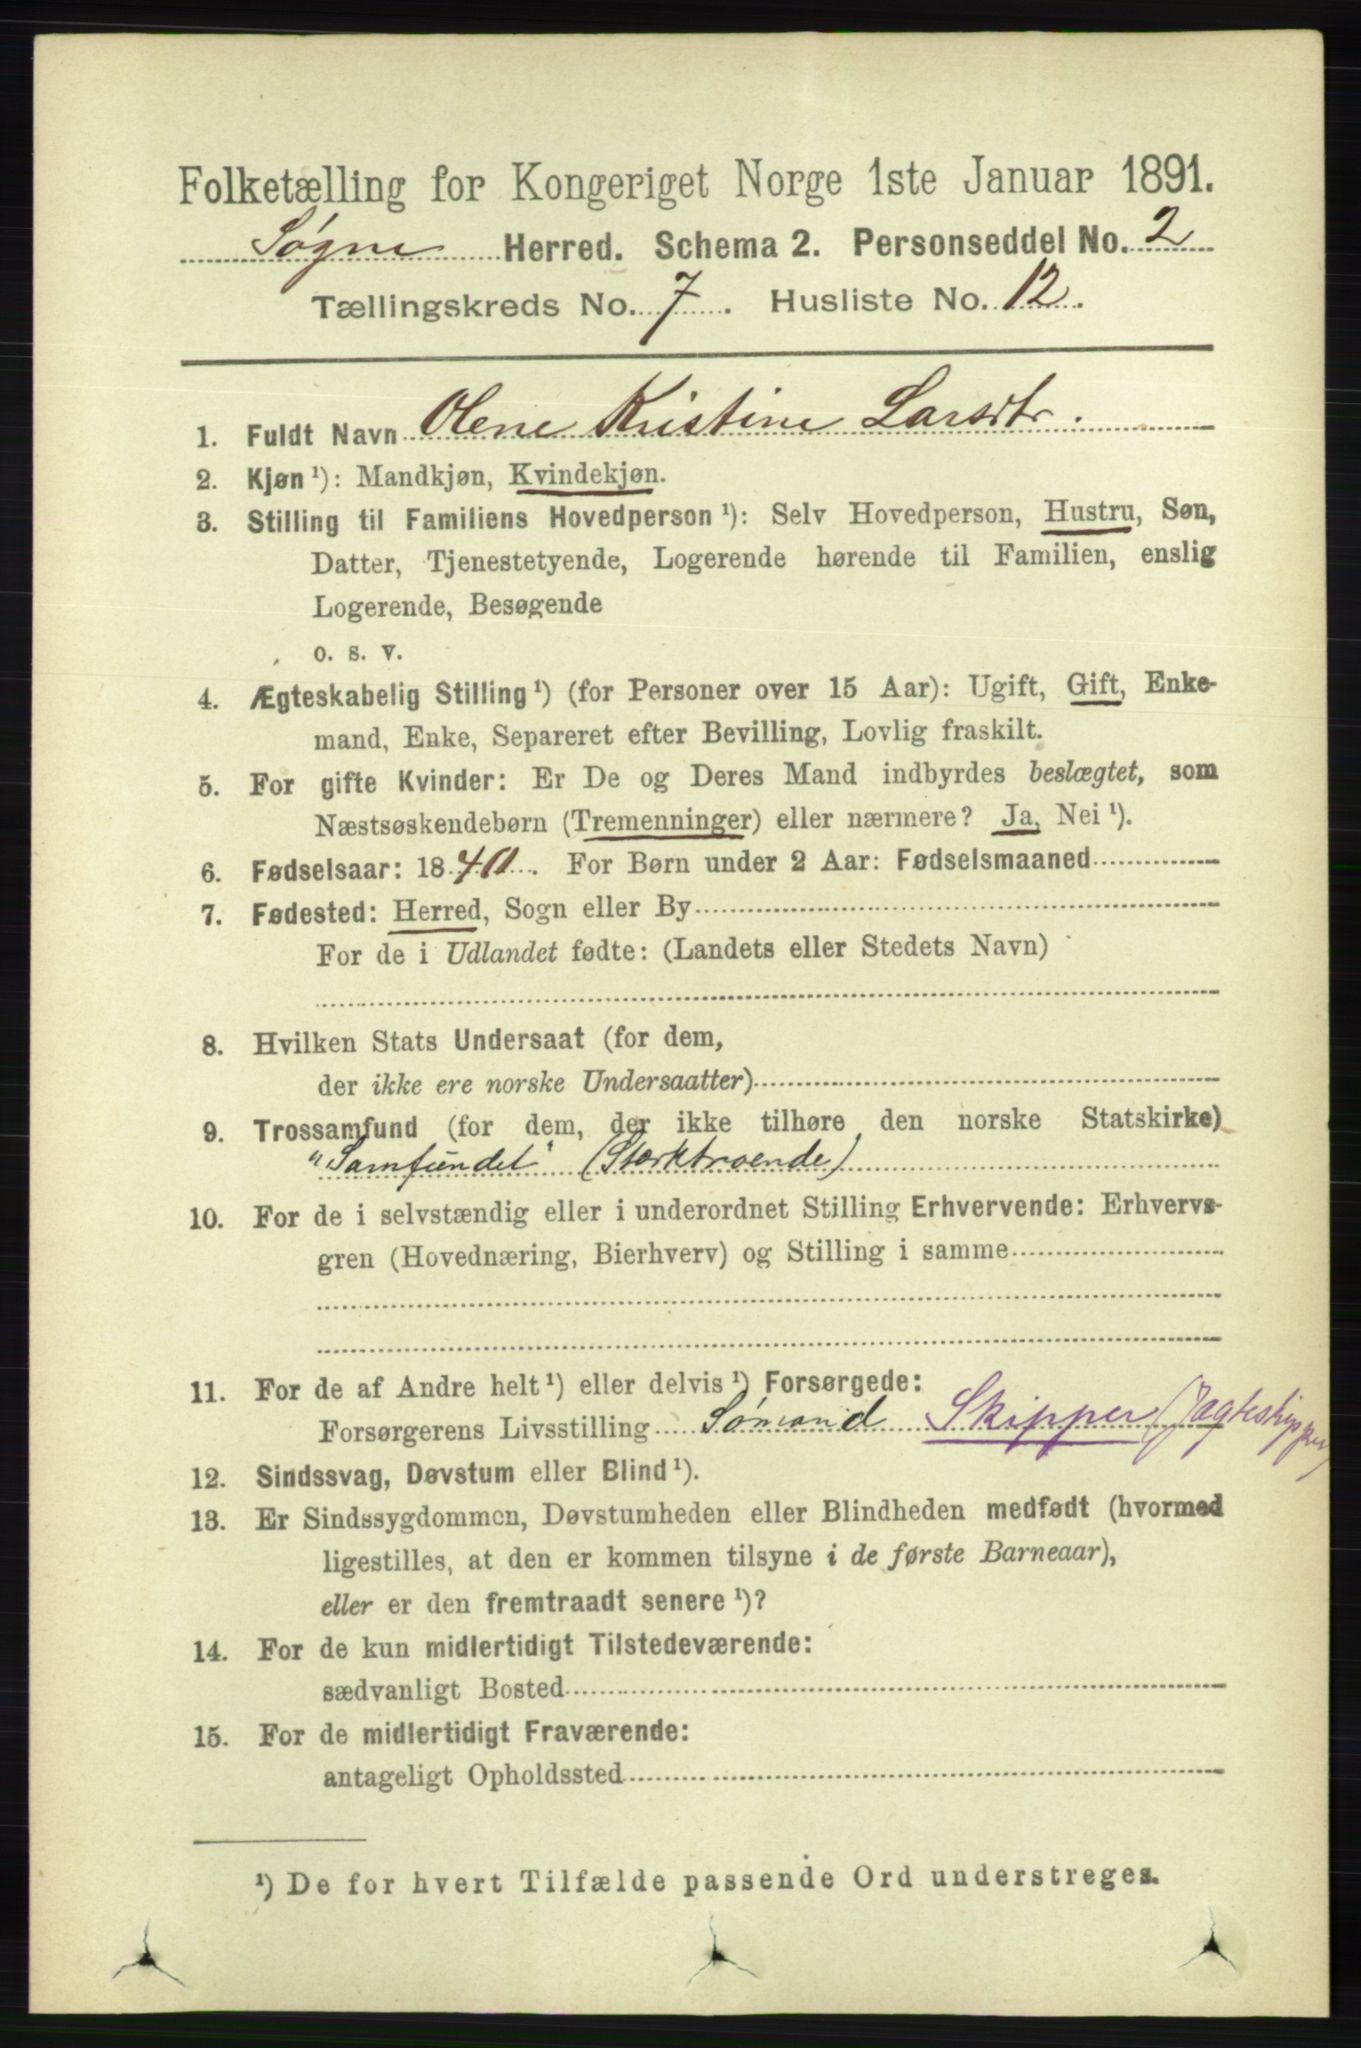 Folketælling for Kongeriget Norge 1ste Januar 1891.
Søgne Herred. Schema 2. Personseddel No. 2
Tællingskreds No. 7. Husliste No. 12.
1. Fuldt Navn Olene Kristine Larsdtr.
2. Kjøn ¹): Mandkjøn, Kvindekjøn.
3. Stilling til Familiens Hovedperson ¹): Selv Hovedperson, Hustru, Søn,
Datter, Tjenestetyende, Logerende hørende til Familien, enslig
Logerende, Besøgende
o. s. v.
4. Ægteskabelig Stilling ¹) (for Personer over 15 Aar): Ugift, Gift, Enke-
mand, Enke, Separeret efter Bevilling, Lovlig fraskilt.
5. For gifte Kvinder: Er De og Deres Mand indbyrdes beslægtet, som
Næstsøskendebørn (Tremenninger) eller nærmere? Ja, Nei ¹).
6. Fødselsaar: 1840. For Børn under 2 Aar: Fødselsmaaned
7. Fødested: Herred, Sogn eller By
For de i Udlandet fødte: (Landets eller Stedets Navn)
8. Hvilken Stats Undersaat (for dem,
der ikke ere norske Undersaatter)
9. Trossamfund (for dem, der ikke tilhøre den norske Statskirke)
"Samfundet" (Stærktroende)
10. For de i selvstændig eller i underordnet Stilling Erhvervende: Erhvervs-
gren (Hovednæring, Bierhverv) og Stilling i samme
11. For de af Andre helt ¹) eller delvis ¹) Forsørgede:
Forsørgerens Livsstilling Sømand Skipper (Jagteskipper)
12. Sindssvag, Døvstum eller Blind ¹).
13. Er Sindssygdommen, Døvstumheden eller Blindheden medfødt (hvormed
ligestilles, at den er kommen tilsyne i de første Barneaar),
eller er den fremtraadt senere ¹)?
14. For de kun midlertidigt Tilstedeværende:
sædvanligt Bosted
15. For de midlertidigt Fraværende:
antageligt Opholdssted
¹) De for hvert Tilfælde passende Ord understreges.